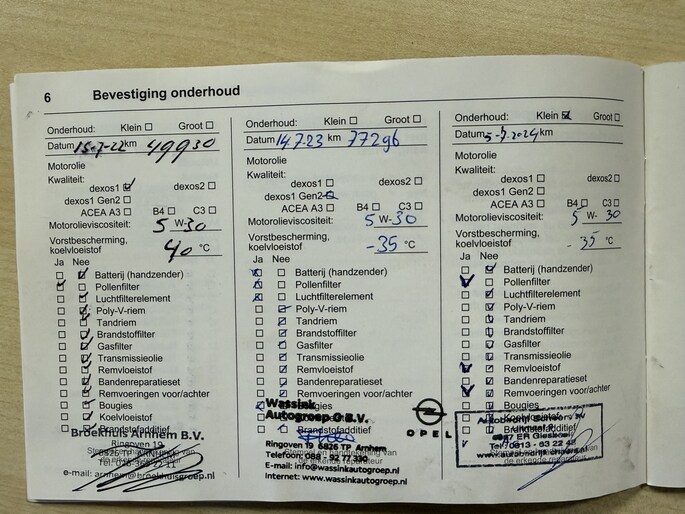 6 Bevestiging onderhoud
Onderhoud: Klein Groot
Datum 15-7-22 km 49930
Motorolie
Kwaliteit:
dexos1 dexos2
dexos1 Gen2
ACEA A3 B4 C3
Motorolieviscositeit: 5 W-30
Vorstbescherming,
koelvloeistof 40 °C
Ja Nee
Batterij (handzender)
Pollenfilter
Luchtfilterelement
Poly-V-riem
Tandriem
Brandstoffilter
Gasfilter
Transmissieolie
Remvloeistof
Bandenreparatieset
Remvoeringen voor/achter
Bougies
Koelvloeistof
Brandstofadditief
Broekhuis Arnhem B.V.
Ringoven 19
e-mail: arnhem@broekhuisgroep.nl
Onderhoud: Klein Groot
Datum 14.7.23 km 77296
Motorolie
Kwaliteit:
dexos1 dexos2
dexos1 Gen2
ACEA A3 B4 C3
Motorolieviscositeit: 5 W-30
Vorstbescherming,
koelvloeistof -35 °C
Ja Nee
Batterij (handzender)
Pollenfilter
Luchtfilterelement
Poly-V-riem
Tandriem
Brandstoffilter
Gasfilter
Transmissieolie
Remvloeistof
Bandenreparatieset
Remvoeringen voor/achter
Bougies
Brandstofadditief
Wassink
Autogroep B.V.
OPEL
Ringoven 19 6826 TP Arnhem
Telefoon: 088 - 92 77 330
Stempel en handtekening van
de erkende reparateur
E-mail: info@wassinkautogroep.nl
Internet: www.wassinkautogroep.nl
Onderhoud: Klein Groot
Datum 5-7-2024 km
Motorolie
Kwaliteit:
dexos1 dexos2
dexos1 Gen2
ACEA A3 B4 C3
Motorolieviscositeit: 5 W- 30
Vorstbescherming,
koelvloeistof - 35 °C
Ja Nee
Batterij (handzender)
Pollenfilter
Luchtfilterelement
Poly-V-riem
Tandriem
Brandstoffilter
Gasfilter
Transmissieolie
Remvloeistof
Bandenreparatieset
Remvoeringen voor/achter
Bougies
Koelvloeistof
Autobedrijf
6987 ER Giesbeek
Tel: 0313 - 63 22
de erkende reparateur